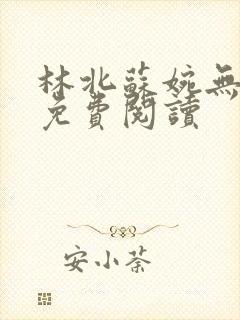 林北蘇婉無
免費閱讀
安小茶